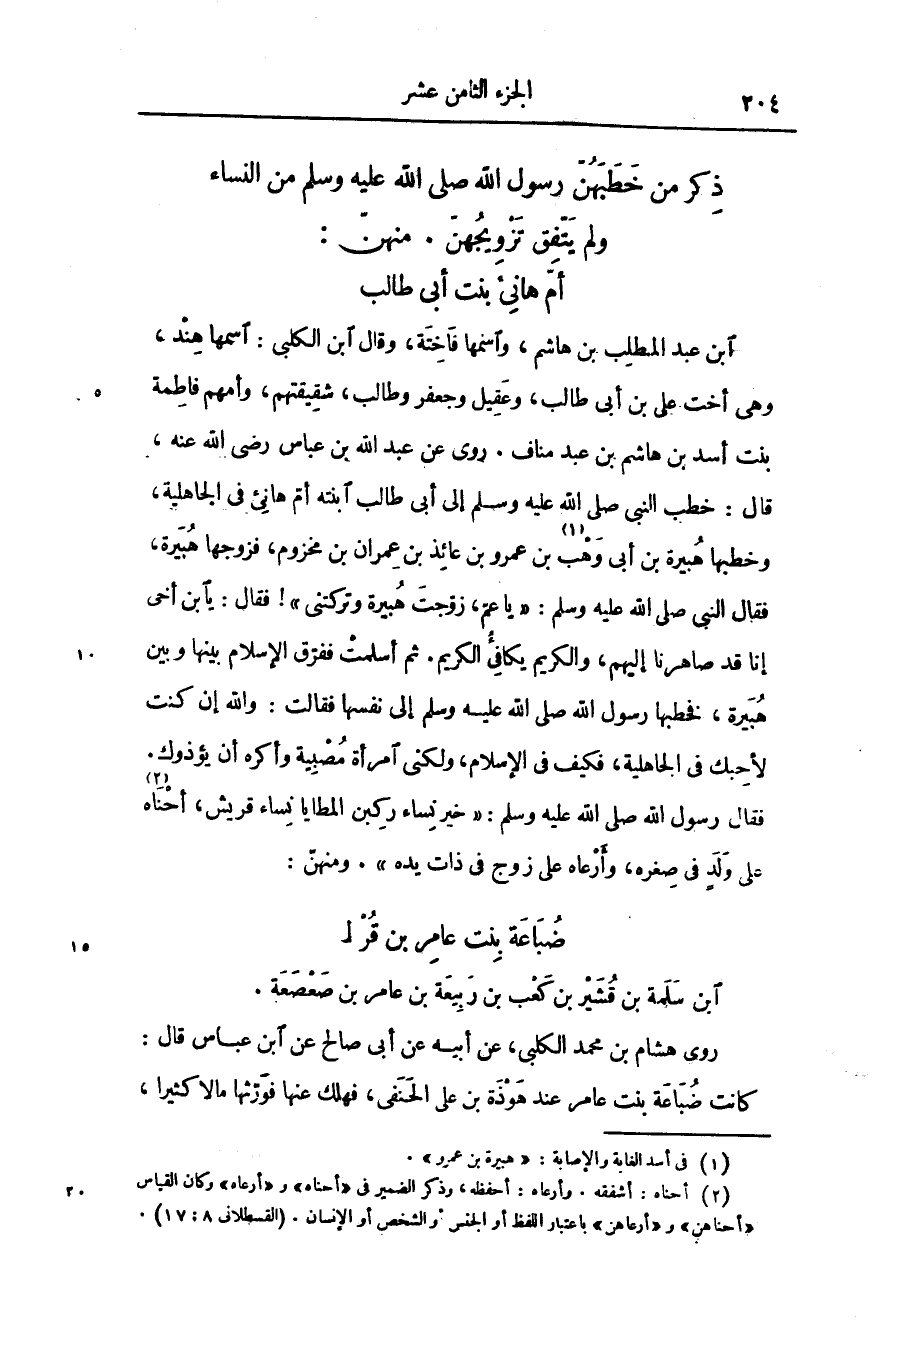 ٢٠٤
الجزء الثامن عشر
ذِكر من خَطَبَهُنّ رسول الله صلى الله عليه وسلم من النساء
ولم يَتّفِق تَزْوِيجُهنّ . منهنّ :
أمّ هانِئ بنت أبى طالب
ٱبن عبد المطلِب بن هاشم ، وٱسمها فَاخِتَة، وقال ٱبن الكلبى : ٱسمها هِنْد ،
وهى أخت على بن أبى طالب، وعَقِيل وجعفر وطالب، شقِيقتهم، وأمهم فاطِمة
٥
بنت أسد بن هاشم بن عبد مناف . روى عن عبد الله بن عباس رضى الله عنه ،
قال : خطب النبى صلى الله عليه وسلم إلى أبى طالب ٱبنته أمّ هانِئ فى الجاهلية،
وخطبها هُبيرة بن أبى وَهْب (١) بن عمرو بن عائِذ بن عِمران بن مخزوم، فزوجها هُبَيرة،
فقال النبى صلى الله عليه وسلم : « ياعمّ، زوّجتَ هُبيرة وتركتنى»! فقال : يٱبن أخى
إنا قد صاهرنا إليهم، والكريم يكافِئُ الكريم. ثم أسلمتْ ففرّق الإسلام بينها وبين
١٠
هُبَيرة ، فخطبها رسول الله صلى الله عليه وسلم إلى نفسها فقالت : والله إن كنت
لأحِبك فى الجاهلية، فكيف فى الإسلام، ولكنى ٱمرأة مُصْبِية وأكره أن يؤذوك.
فقال رسول الله صلى الله عليه وسلم : « خير نِساء ركِبن المطايا نِساء قريش، أحْنَاه (٢)
على وَلَدٍ فى صِغره، وأَرْعاه على زوج فى ذات يده » . ومنهنّ :
ضُبَاعَة بِنت عامِر بن قُرْ
١٥
ٱبن سَلَمة بن قُشَيْر بن كَعْب بن رَبِيعَة بن عامر بن صَعْصَعَة .
روى هشام بن محمد الكلبى، عن أبيه عن أبى صالح عن ٱبن عباس قال :
كانت ضُبَاعَة بنت عامر عند هَوْذَة بن على الحَنَفى، فهلك عنها فوَرّثها مالا كثيرا ،
(١) فى أسد الغابة والإصابة : « هبيرة بن عمرو» .
(٢) أحناه : أشفقه . وأرعاه : أحفظه، وذكر الضمير فى «أحناه» و «أرعاه» وكان القياس
٢٠
«أحناهن» و «أرعاهن» باعتبار اللفظ أو الجنس أو الشخص أو الإنسان . (القسطلانى ٨ : ١٧) .